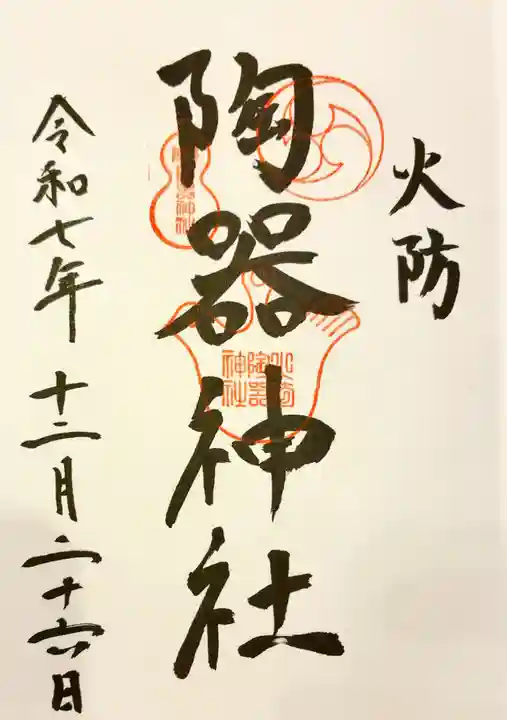 火防
陶器神社
火防
陶器
神社
令和七年 十二月二十六日